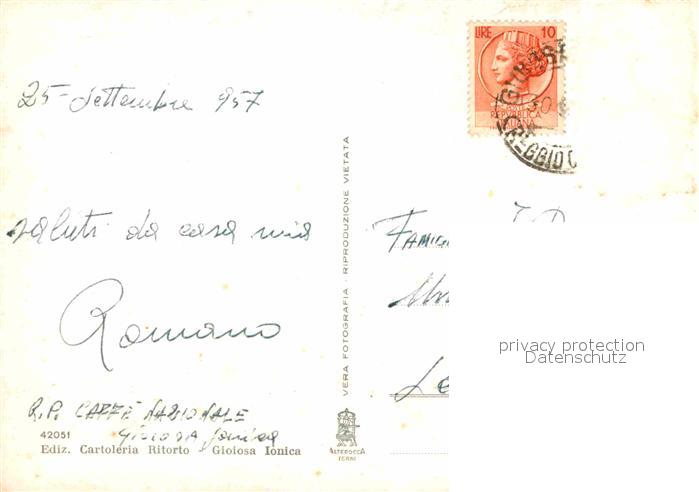 25-Settembre 957
saluti da casa mia
Romano
R.P. CAFFÈ NAZIONALE
Gioiosa Jonica
42051
Ediz. Cartoleria Ritorto - Gioiosa Ionica
VERA FOTOGRAFIA - RIPRODUZIONE VIETATA
ALTEROCCA
TERNI
LIRE 10
REPVBBLICA
ITALIANA
GIOIOSA
REGGIO C
FAMIG
Le
privacy protection
Datenschutz